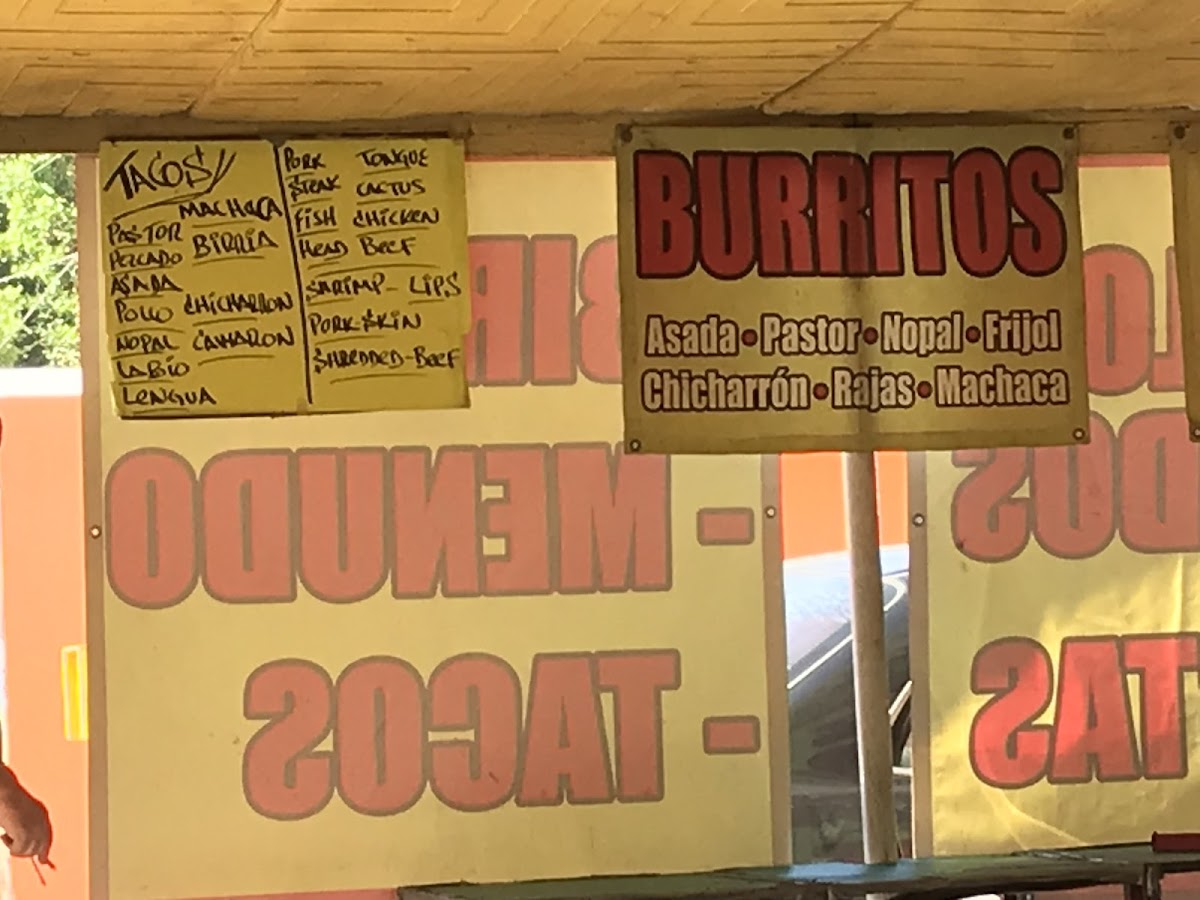 TACOS
MACHACA
PASTOR
BIRRIA
PEZCADO
ASADA
POLLO CHICHARRON
NOPAL CAMARON
LABIO
LENGUA
PORK TONGUE
STEAK CACTUS
FISH CHICKEN
HEAD BEEF
SHRIMP - LIPS
PORK SKIN
SHREDDED-BEEF
BURRITOS
Asada • Pastor • Nopal • Frijol
Chicharrón • Rajas • Machaca
- MENUDO
- TACOS